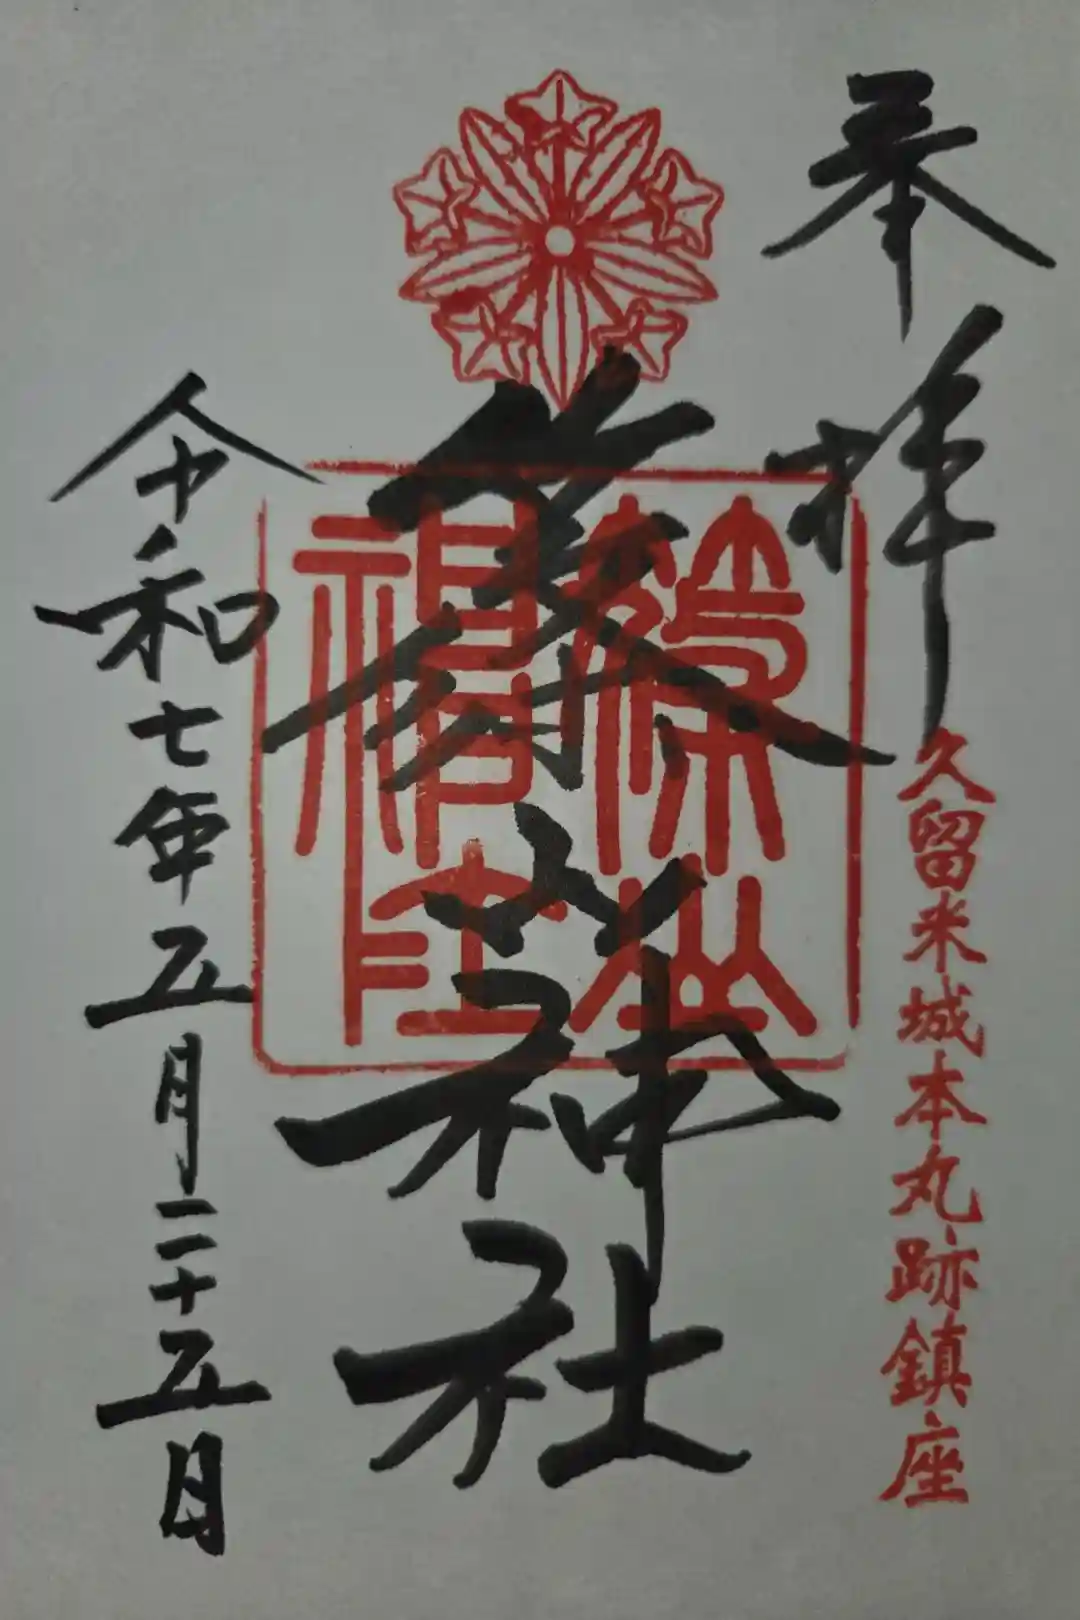 奉拝
久留米城本丸跡鎮座
篠山神社
篠山
令和七年五月二十五日